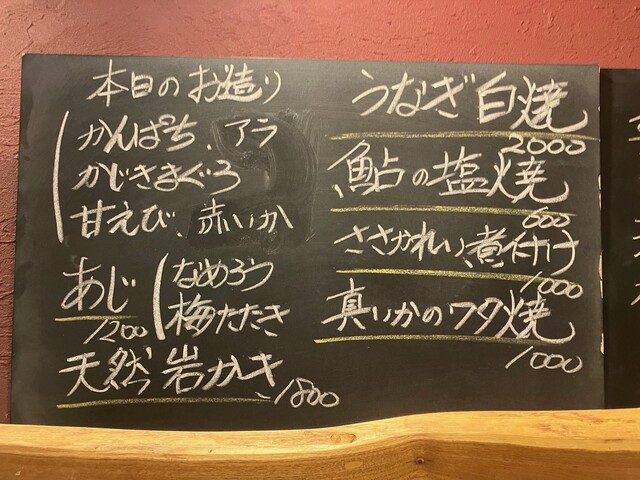 本日のお造り
かんぱち、アラ
かじきまぐろ
甘えび、赤いか
あじ
なめろう
梅たたき
1200
天然岩かき
1800
うなぎ白焼
2000
鮎の塩焼
600
ささかれい煮付け
1000
真いかのワタ焼
1000